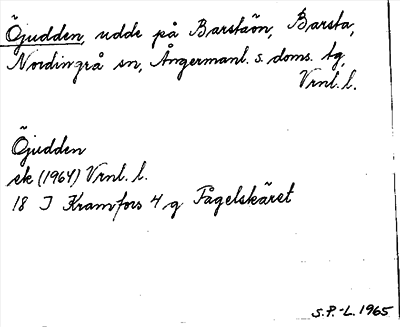 Öjudden, udde på Barstaön, Barsta,
Nordingrå sn, Ångermanl. s. doms. tg,
Vrnl. l.
Öjudden
ek (1964) Vrnl. l.
18 J Kramfors 4 g Fågelskäret
S.P.-L. 1965